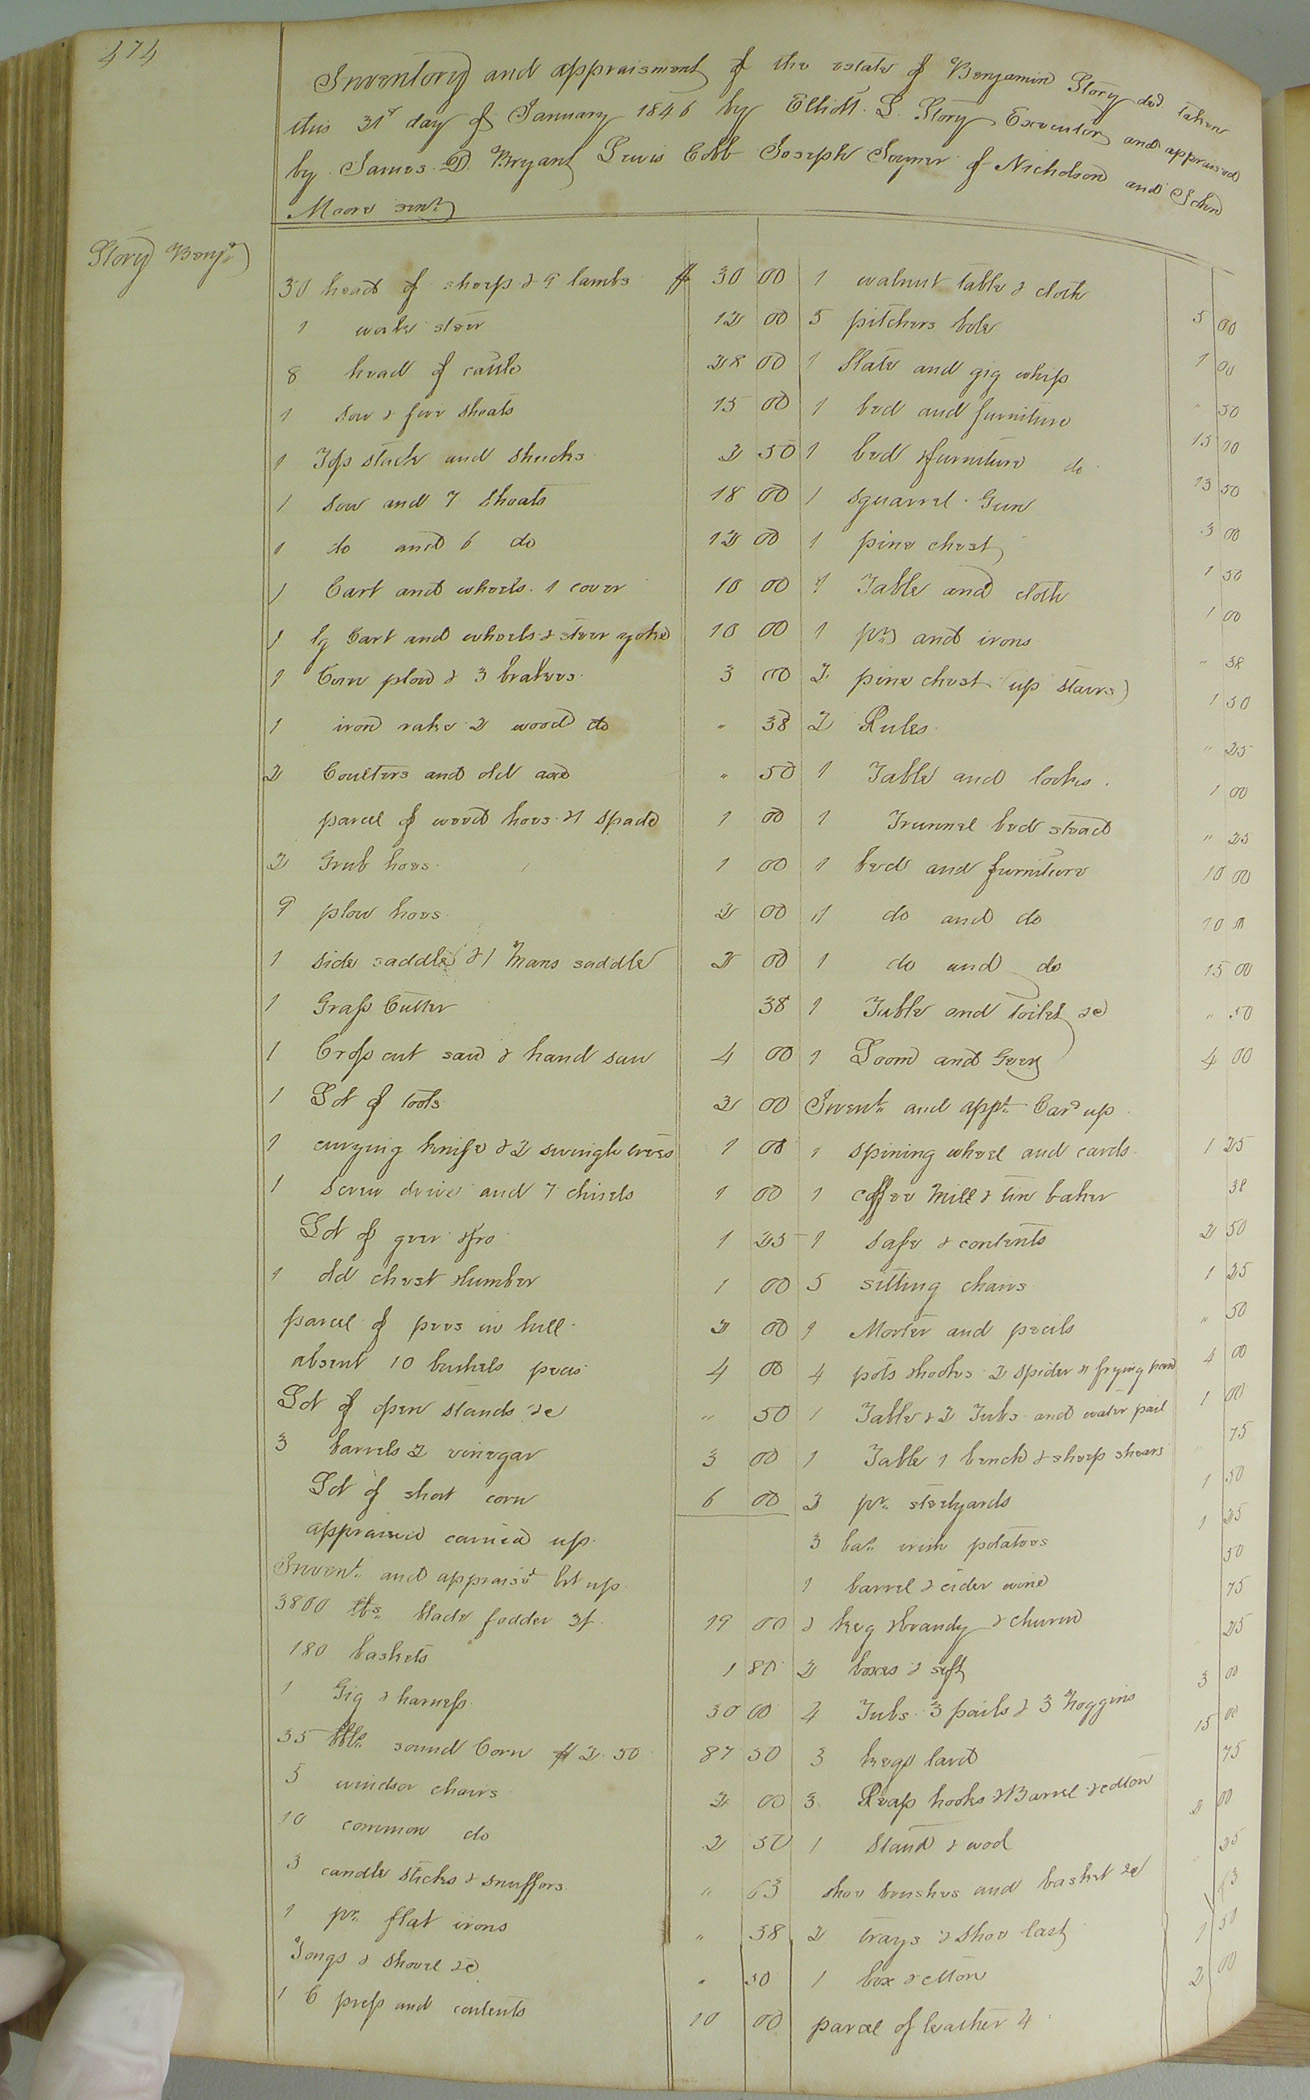 474
Inventory and appraisment of the estate of Benjamin Story decd taken
this 31st day of January 1846 by Elliott L. Story Executor and appraised
by James D. Bryant Lewis Cobb Joseph Joyner of Nicholson and John
Moore sent
Story Benja
30 head of sheep & 9 lambs $ 30 00
1 work steer 12 00
8 head of cattle 28 00
1 sow & five shoats 15 00
1 Top stack and shucks 2 50
1 sow and 7 shoats 18 00
1 do and 6 do 12 00
1 Cart and wheels 1 cover 10 00
1 lg Cart and wheels & steer yoke 10 00
1 Corn plow & 3 brakes 3 00
1 iron rake 2 wood do " 38
2 Coulters and old axe " 50
parcel of weed hoes & 1 spade 1 00
2 Grub hoes 1 00
9 plow hoes 2 00
1 side saddle & 1 Mans saddle 2 00
1 Grass Cutter 38
1 Cross cut saw & hand saw 4 00
1 Lot of tools 2 00
1 currying knife & 2 swingle trees 1 00
1 screw driver and 7 chisels 1 00
Lot of geer &fro 1 25
1 old chest &lumber 1 00
parcel of peas in hull 2 00
absent 10 bushels peas 4 00
Lot of open stands &c " 50
3 barrels 2 vinegar 3 00
Lot of short corn 6 00
appraised carried up
Invent. and appraist bt up
3800 lbs blade fodder 19 00
180 baskets 1 80
1 Gig & harness 30 00
35 bbls sound Corn $2.50 87 50
5 windsor chairs 2 00
10 common do 2 50
3 candle sticks & snuffers " 63
1 pr. flat irons " 38
Tongs & shovel &c " 50
1 C press and contents 10 00
1 walnut table & cloth 5 00
5 pitchers bole 1 00
1 Slate and gig whip " 50
1 bed and furniture 15 00
1 bed &furniture do 13 50
1 squarrel Gun 3 00
1 pine chest 1 50
1 Table and cloth 1 00
1 pr and irons " 38
2 pine chest up stairs 1 50
2 Rules " 25
1 Table and lookes 1 00
1 Trunnel bed stead " 25
1 bed and furniture 10 00
1 do and do 10 00
1 do and do 15 00
1 Table and toilet &c " 50
1 Loom and Geer 4 00
Invent. and appt. Card up
1 spining wheel and cards 1 25
1 coffee Mill & tin baker 38
1 safe & contents 2 50
5 sitting chairs 1 25
1 Morter and peals " 50
4 pots &hooks 2 spider & frying pan 4 00
1 Table & 2 Tubs and water pail 1 00
1 Table 1 bench & sheep shears 75
2 pr. steelyards 1 50
3 ba. irish potatoes 1 25
1 barrel & cider wine 50
& keg &brandy & churn 75
2 boxes & sift 25
4 Tubs 3 pails & 3 Noggins 3 00
3 kegs lard 15 00
3 Reap hooks & Barrel &cotton 75
1 Stand & wool 2 00
shoe brushes and basket &c 25
2 trays & shoe last 63
1 box & cotton 1 50
parcel of leather 4 2 00